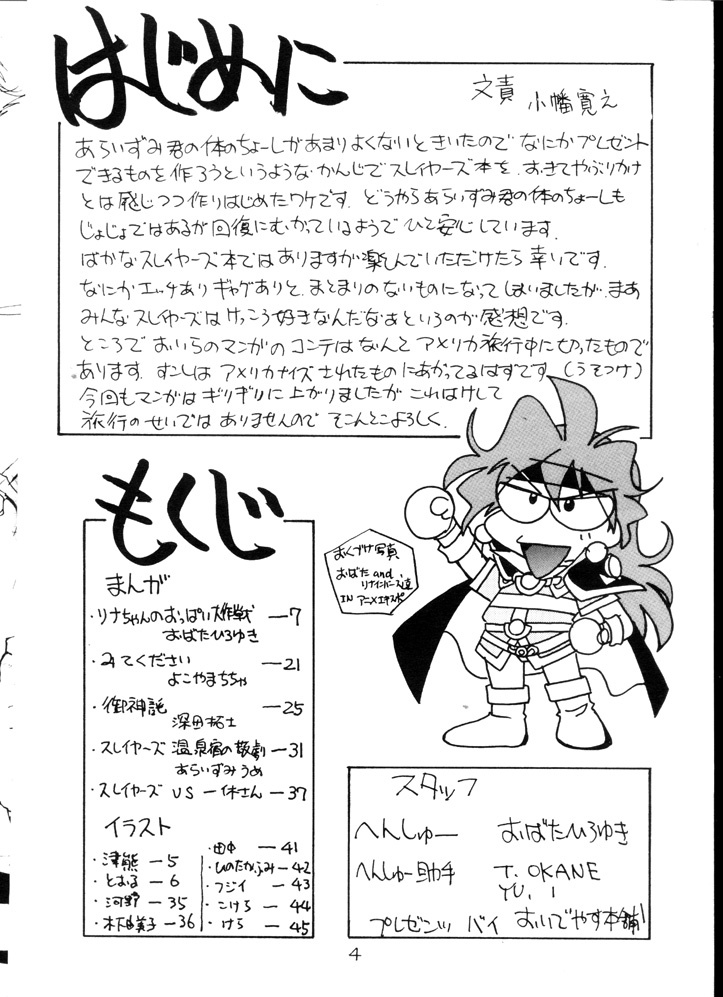 はじめに
文責
小幡寛え
あらいずみ君の体のちょーしがあまりよくないときいたので なにかプレゼント
できるものを作ろうというような かんじでスレイヤーズ本を、おきてやぶりかけ
とは感じつつ作りはじめたワケです。どうやらあらいずみ君の体のちょーしも
じょじょではあるが回復にむかっているようで ひと安心しています。
ばかなスレイヤーズ本ではありますが楽しんでいただけたら幸いです。
なにかエッチありギャグありと、まとまりのないものになってしまいましたが、まあ
みんなスレイヤーズはけっこう好きなんだなあというのが感想です。
ところで おいらのマンガのコンテはなんと アメリカ旅行中に切ったもので
あります。すこしは アメリカナイズされたものにあがってるはずです (うそつけ)
今回もマンガはギリギリに上がりましたが これはけして
旅行のせいでは ありませんので そこんとこよろしく.
もくじ
まんが
・リナちゃんのおっぱい大作戦 ー7
おばたひろゆき
・みてください ー21
よこやまちちゃ
・御神託 ー25
深田拓士
・スレイヤーズ 温泉宿の惨劇 ー31
あらいずみうめ
・スレイヤーズ VS 一休さん ー37
イラスト
・津熊 ー5
・とおる ー6
・河野 ー35
・木下由美子 ー36
・田中 ー41
・ひのたかふみー42
・フジイ ー43
・こけら ー44
・けら ー45
おくづけ写真
おばた and
リナインバース達
IN アニメエキスポ
スタッフ
へんしゅー おばたひろゆき
へんしゅー助手 T. OKANE
YU. I
プレゼンツ バイ おいでやす本舗
4